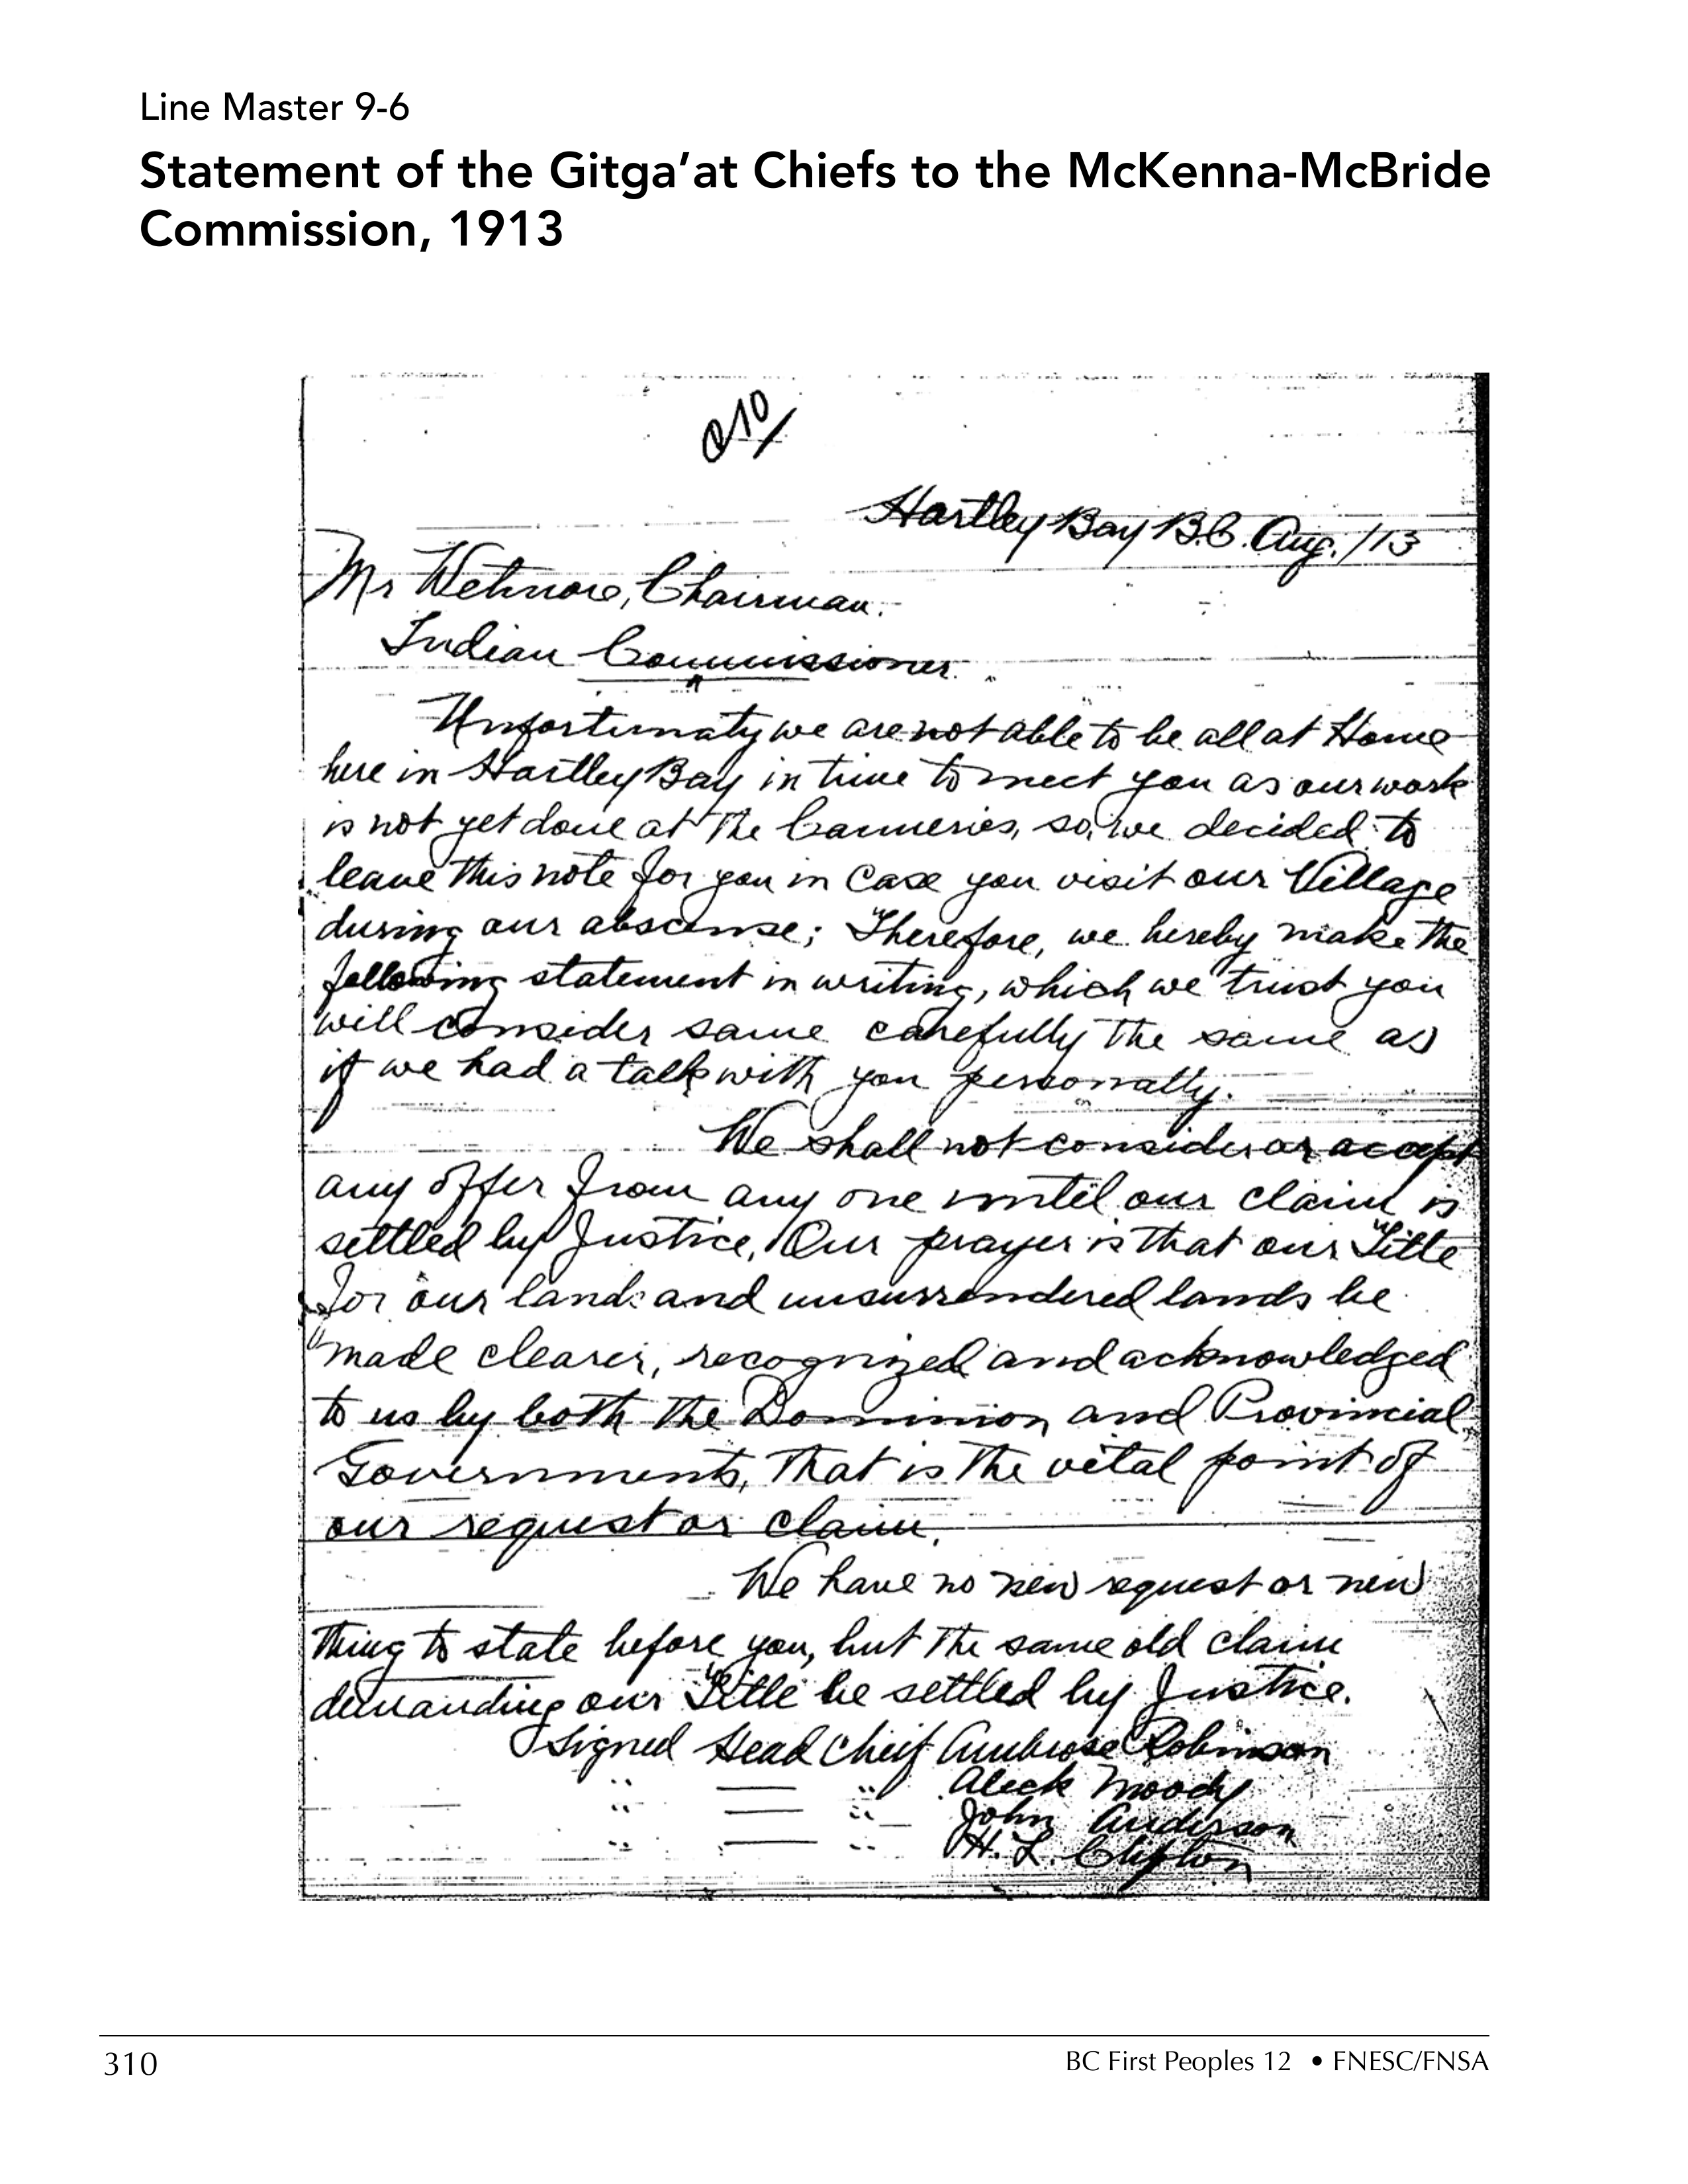 Line Master 9-6
Statement of the Gitga’at Chiefs to the McKenna-McBride
Commission, 1913
Hartley Bay B.C. Aug. /13
Mr Wetmore, Chairman.
Indian Commissioner.
Unfortunaty we are not able to be all at Home
here in Hartley Bay in time to meet you as our work
is not yet done at the Canneries, so, we decided to
leave this note for you in Case you visit our Village
during our abscense; Therefore, we hereby make the
following statement in writing, which we trust you
will consider same carefully the same as
if we had a talk with you personally.
We shall not consider or accept
any offer from any one until our claim is
settled by Justice, Our prayer is that our Title
for our land and unsurrendered lands be
made clearer, recognized and acknowledged
to us by both the Dominion and Provincial
Governments, that is the vital point of
our request or claim.
We have no new request or new
thing to state before you, but the same old claim
demanding our Title be settled by Justice.
Signed Head Cheif Ambrose Robinson
" — " Aleck Moody
" — " John Anderson
" — " H. L. Clifton
310
BC First Peoples 12 • FNESC/FNSA